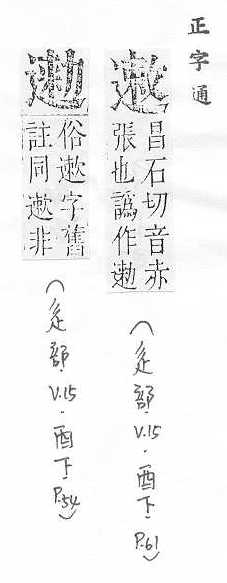 正字通
遫
昌石切音赤
張也譌作
(辵部.V.15.酉下.P.61)
俗遫字舊
註同遫非
(辵部.V.15.酉下.P.54)